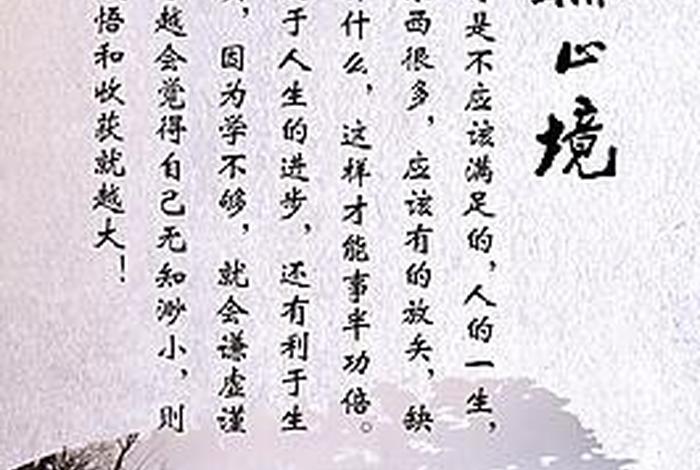 心境
是不应该满足的，人的一生，
西很多，应该有的放矢，缺
什么，这样才能事半功倍。
于人生的进步，还有利于生
，因为学不够，就会谦虚谨
越会觉得自己无知渺小，则
悟和收获就越大！